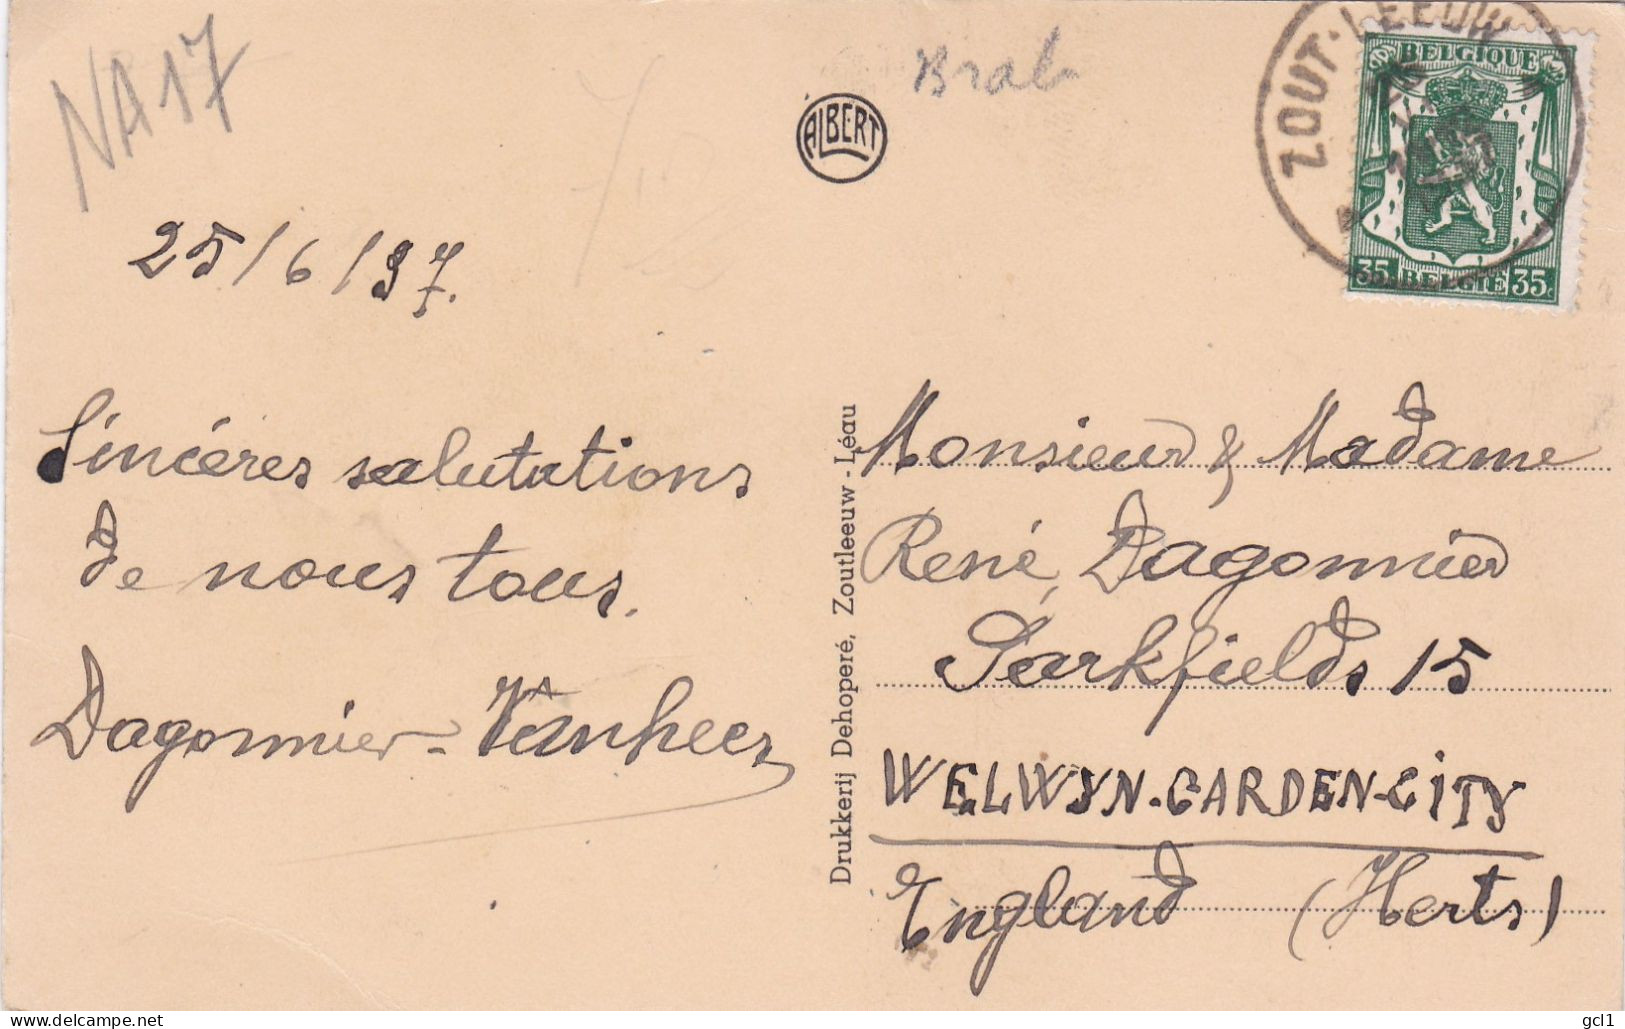 NA17
Brab
ALBERT
ZOUT-LEEUW
BELGIQUE
35 BELGIE 35c
25/6/37.
Sincères salutations
de nous tous.
Dagonnier-Vanheer
Drukkerij Dehoperé, Zoutleeuw - Léau
Monsieur & Madame
René Dagonnier
Parkfields 15
WELWYN-GARDEN-CITY
England (Herts)
Delcampe.net
gcl1